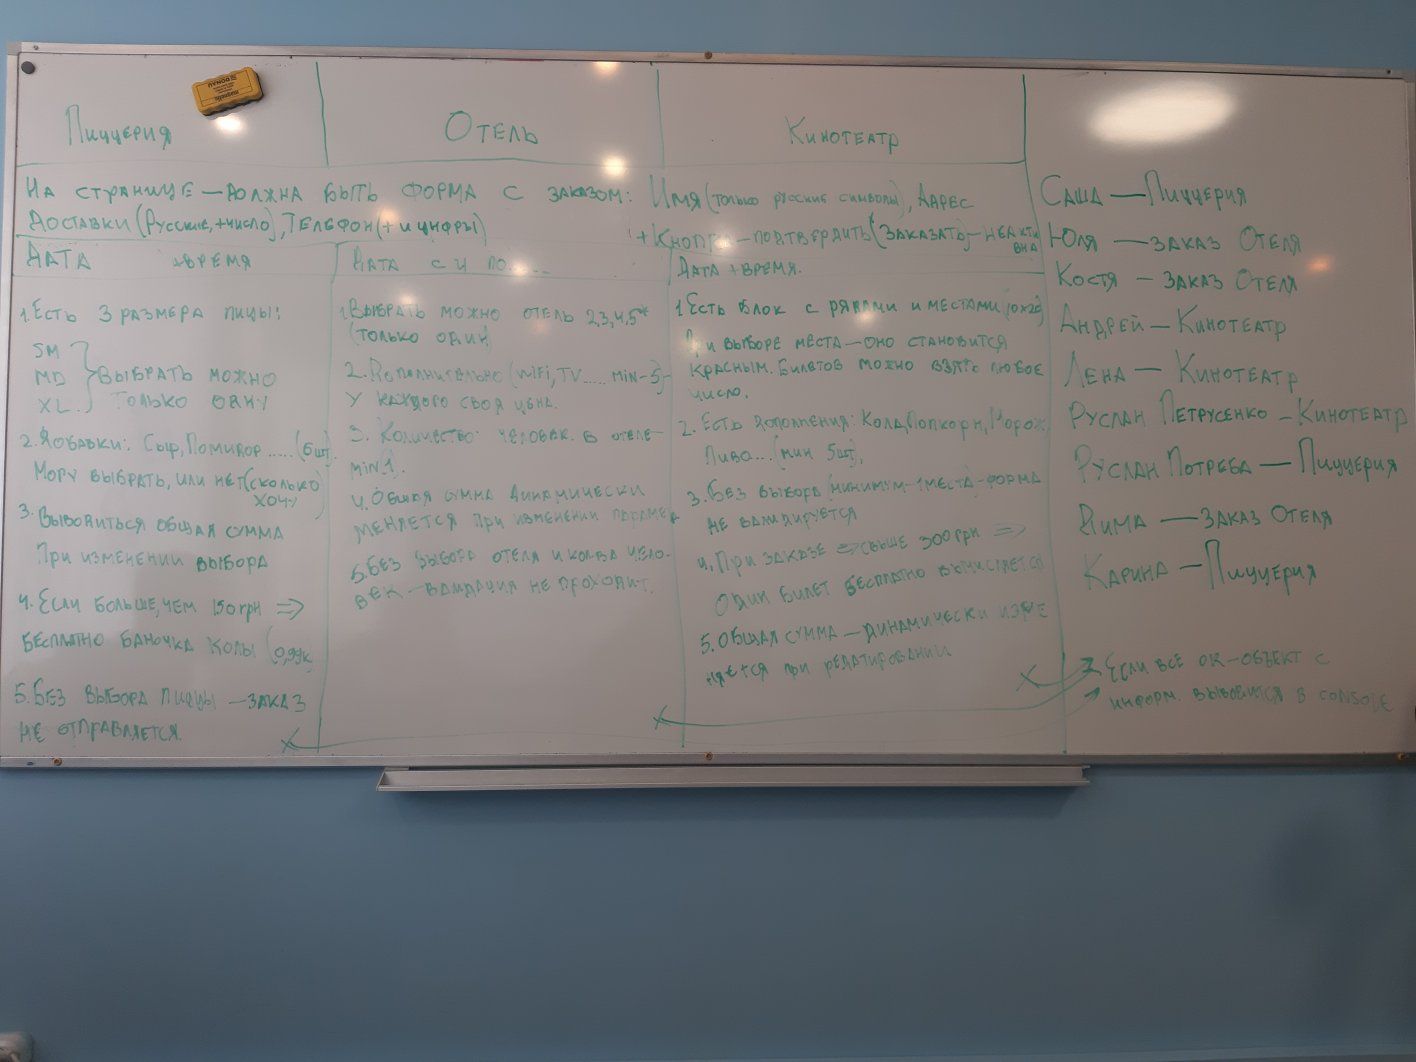 Пиццерия
Отель
Кинотеатр
На странице — должна быть форма с заказом: Имя (только русские символы), Адрес
доставки (Русские, + число), Телефон (+ и цифры)
+ Кнопка — подтвердить (Заказать) — неактивна
Дата + время
1. Есть 3 размера пиццы:
SM
MD
XL.
Выбрать можно
только одну
2. Добавки: Сыр, Помидор ..... (6 шт).
Могу выбрать, или нет (сколько
хочу)
3. Выводиться общая сумма
При изменении выбора
4. Если больше, чем 150 грн =>
бесплатно баночка колы (0,33к
5. Без выбора пиццы — заказ
не отправляется.
Дата с и по......
1. Выбрать можно отель 2,3,4,5*
(только один)
2. Дополнительно (WIFI, TV ..... min-5)-
у каждого своя цена.
3. Количество человек в отеле-
min 1.
4. Общая сумма динамически
меняется при изменении парамет
5. Без выбора отеля и колва чело-
век — валидация не проходит.
Дата + время.
1. Есть блок с рядами и местами (10x20)
При выборе места — оно становится
красным. Билетов можно взять любое
число.
2. Есть дополнения: Кола, Попкорн, Морож.
Пиво... (мин 5шт).
3. Без выбора (минимум-1места)-форма
не валидируется
4. При заказе => свыше 300 грн =>
Один билет бесплатно вычисляется
5. Общая сумма — динамически изме
няется при редатировании
Саша — Пиццерия
Юля — заказ Отеля
Костя — Заказ Отеля
Андрей — Кинотеатр
Лена — Кинотеатр
Руслан Петрусенко — Кинотеатр
Руслан Потреба — Пиццерия
Дима — заказ Отеля
Карина — Пиццерия
Если все ок-объект с
информ. выводится в console